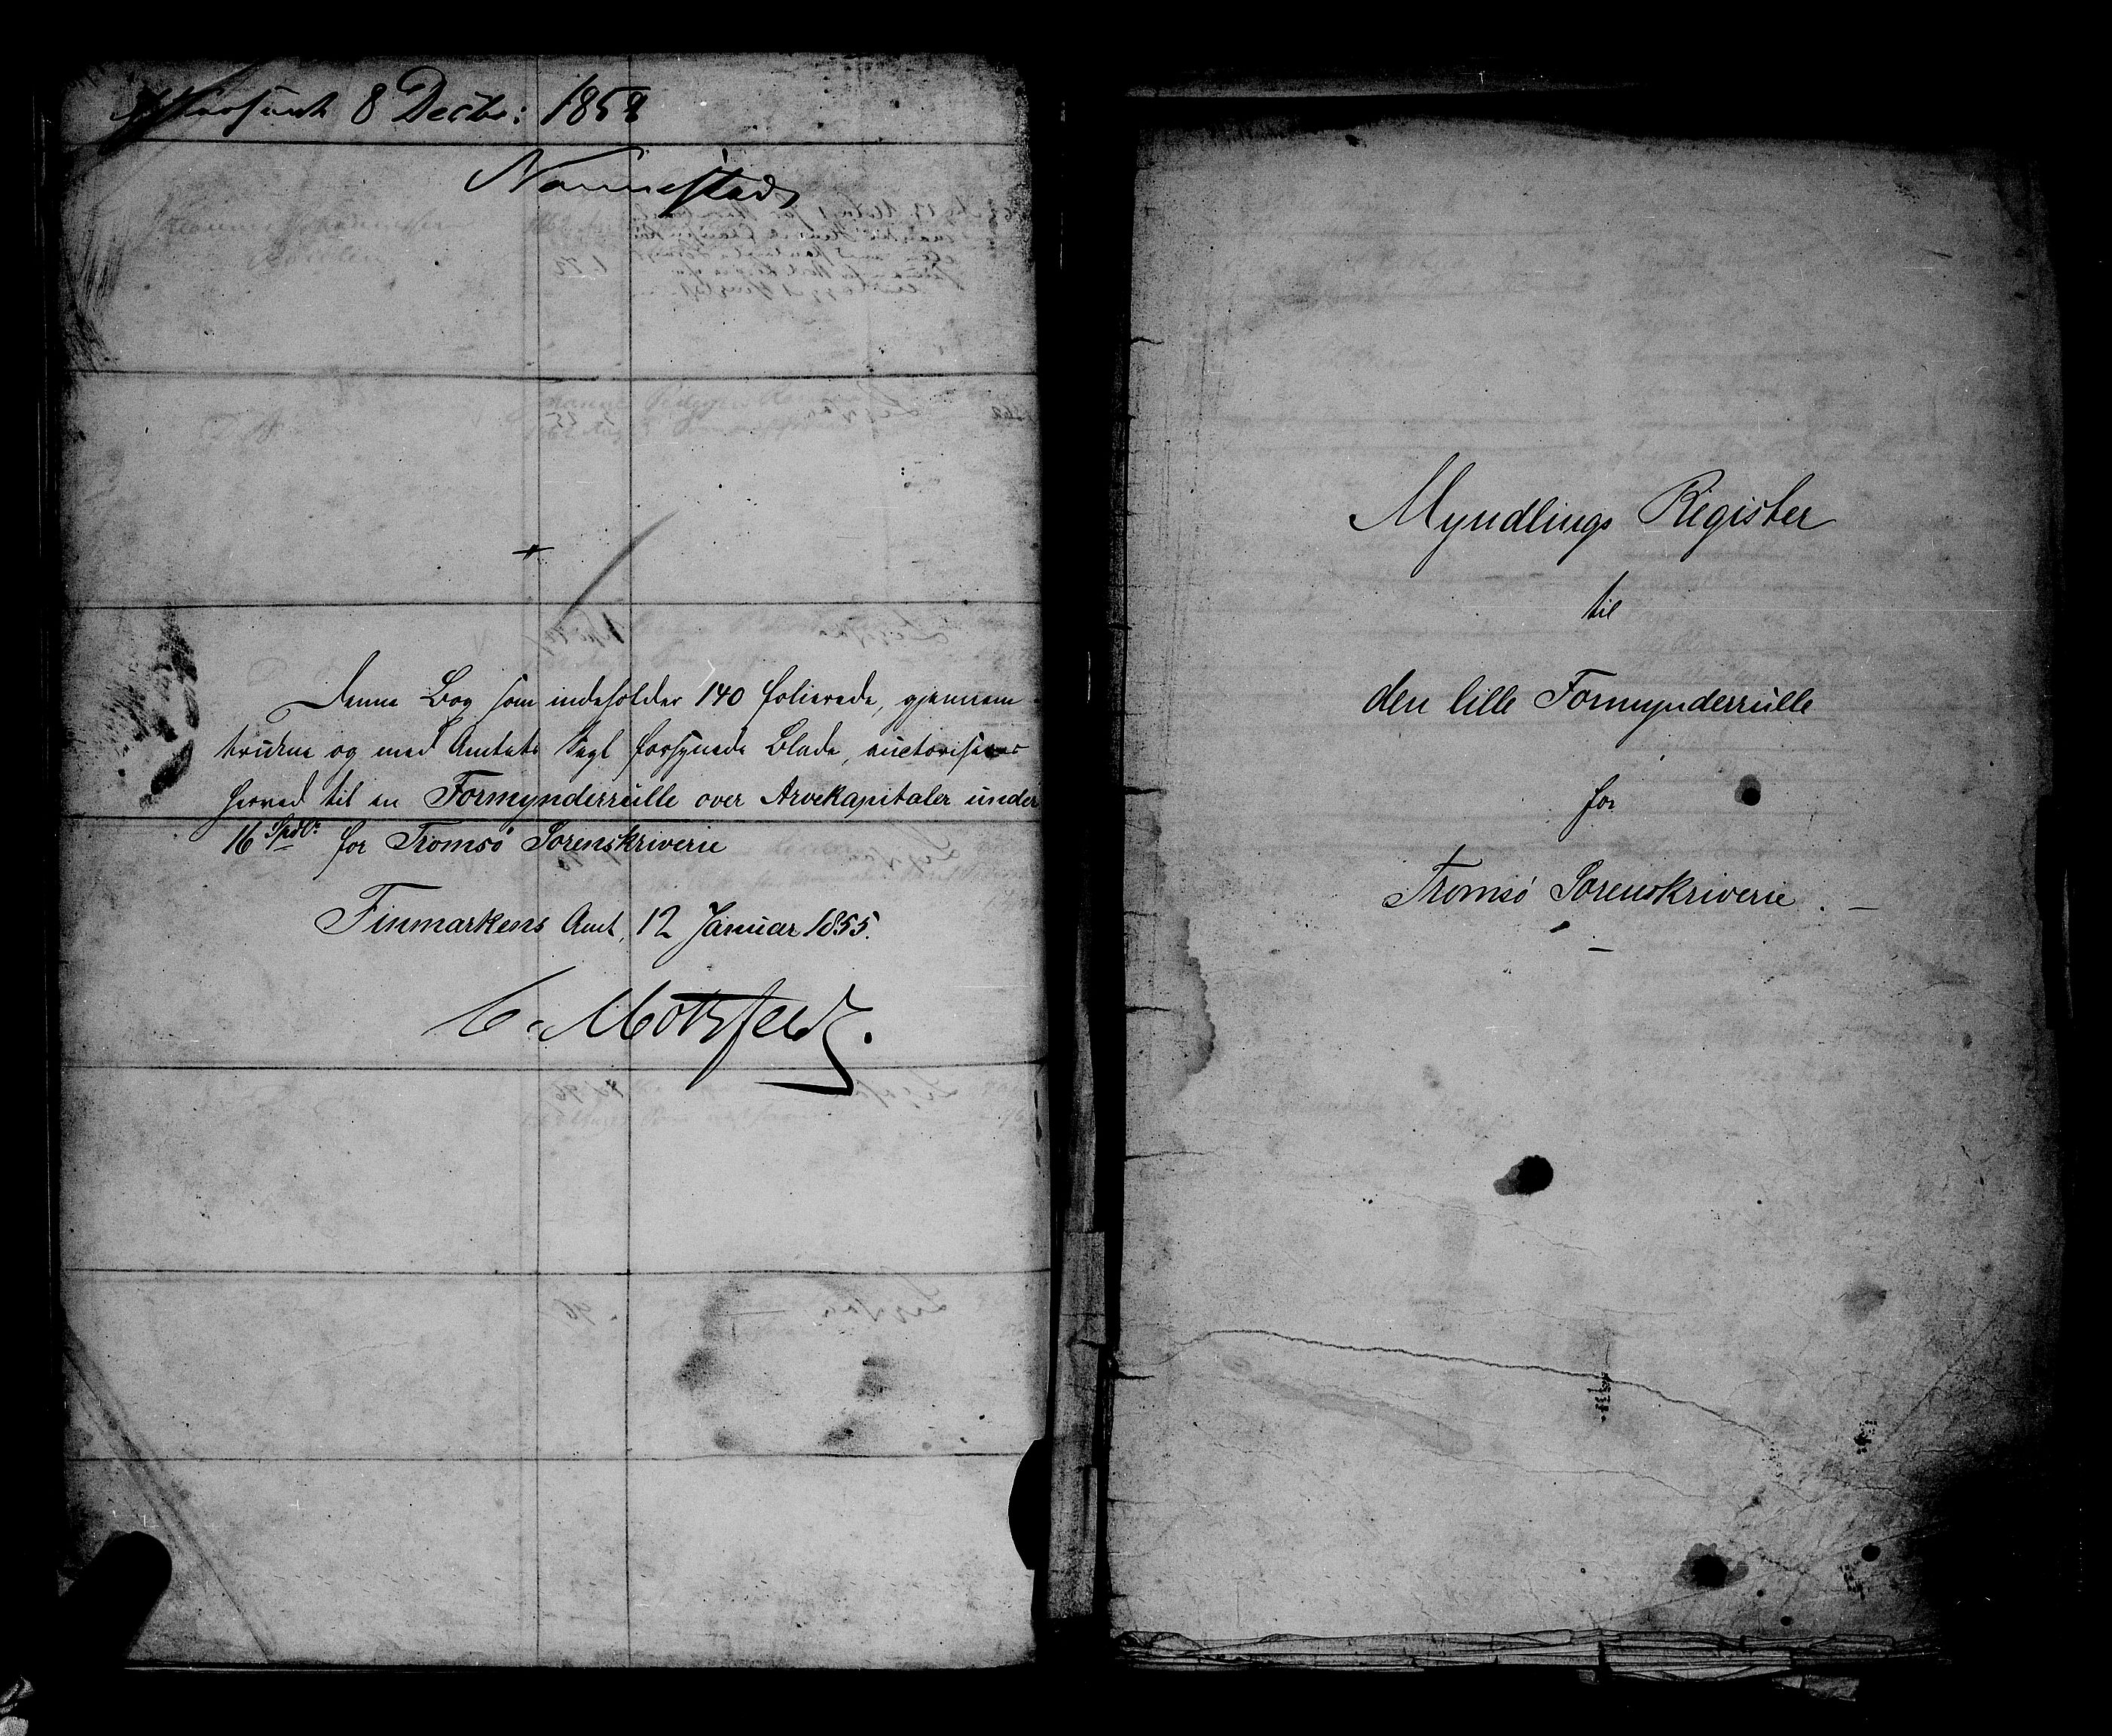 8 Decbr: 1858
Nannestad
Denne Bog som indeholder 140 folierede, gjennem
trukne og med Amtets Segl forsynede Blade, auctoriseres
herved til en Formynderrulle over Arvekapitaler under
16 Spdlr for Tromsö Sorenskriverie
Finmarkens Amt, 12 Januar 1855.
C. Motzfeldt.
Myndlings Register
til
den lille Formynderrulle
for
Tromsö Sorenskriverie. —